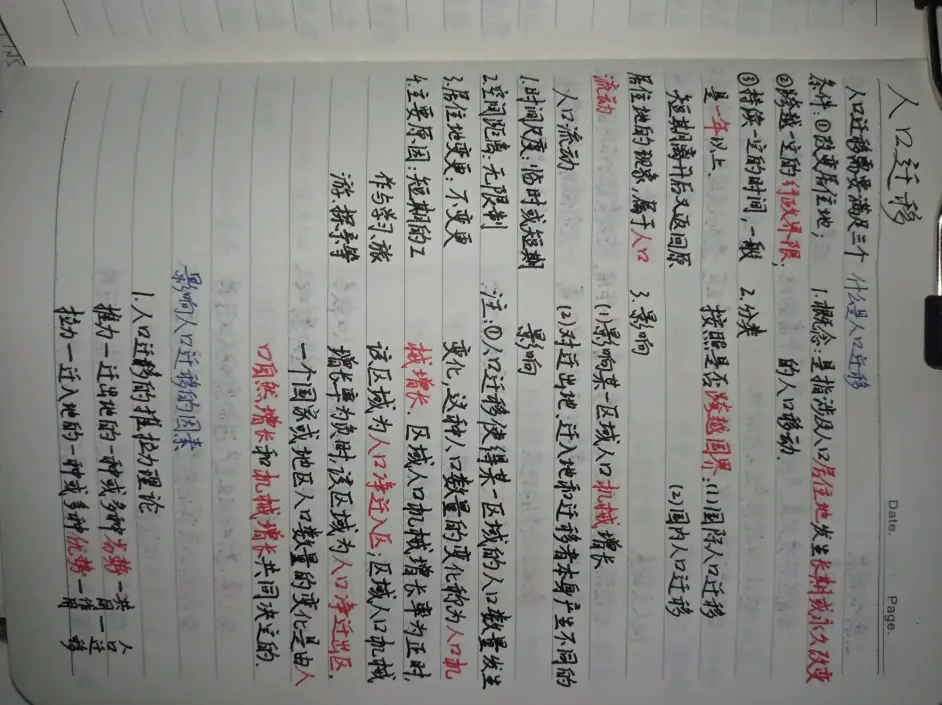 Date.
Page.
人口迁移
人口迁移需要满足三个
条件:①改变居住地;
②跨越一定的行政界限;
③持续一定的时间,一般
是一年以上.
短期离开后又返回原
居住地的现象,属于人口
流动
人口流动
1.时间尺度:临时或短期
2.空间距离:无限制
3.居住地变更:不变更
4.主要原因:短期的工
作与学习,旅
游,探亲等
什么是人口迁移
1.概念:是指涉及人口居住地发生长期或永久改变
的人口移动.
2.分类
按照是否跨越国界:(1)国际人口迁移
(2)国内人口迁移
3.影响
(1)影响某一区域人口机械增长
(2)对迁出地、迁入地和迁移者本身产生不同的
影响
注:①人口迁移使得某一区域的人口数量发生
变化,这种人口数量的变化称为人口机
械增长.区域人口机械增长率为正时,
该区域为人口净迁入区;区域人口机械
增长率为负时,该区域为人口净迁出区.
一个国家或地区人口数量的变化是由人
口自然增长和机械增长共同决定的.
影响人口迁移的因素
1.人口迁移的推拉力理论
推力—迁出地的一种或多种劣势
拉力—迁入地的一种或多种优势
共同作用—人口迁移